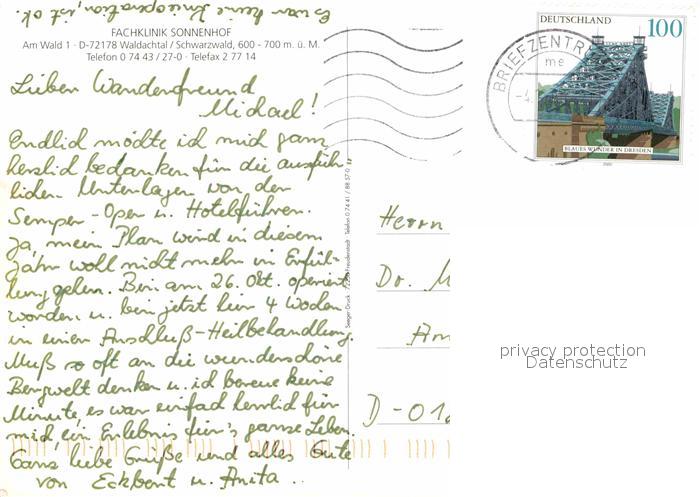 Es war keine Knieoperation, ist ok.
FACHKLINIK SONNENHOF
Am Wald 1 · D-72178 Waldachtal / Schwarzwald, 600 - 700 m. ü. M.
Telefon 0 74 43 / 27-0 · Telefax 2 77 14
Lieben Wanderfreund
Michael!
Endlich möchte ich mich ganz
herzlich bedanken für die ausführ-
lichen Unterlagen von der
Semper-Oper u. Hotelführer.
Ja, mein Plan wird in diesem
Jahr wohl nicht mehr in Erfül-
lung gehen. Bin am 26. Okt. operiert
worden u. bin jetzt hier 4 Wochen
in einer Anschluß-Heilbehandlung.
Muß so oft an die wunderschöne
Bergwelt denken u. ich bereue keine
Minute, es war einfach herrlich für
mich, ein Erlebnis für's ganze Leben.
Ganz liebe Grüße und alles Gute
von Eckbert u. Anita ..
DEUTSCHLAND 100
BLAUES WUNDER IN DRESDEN
BRIEFZENTRU
me
Herrn
Dr. M
Am
D-01
privacy protection
Datenschutz